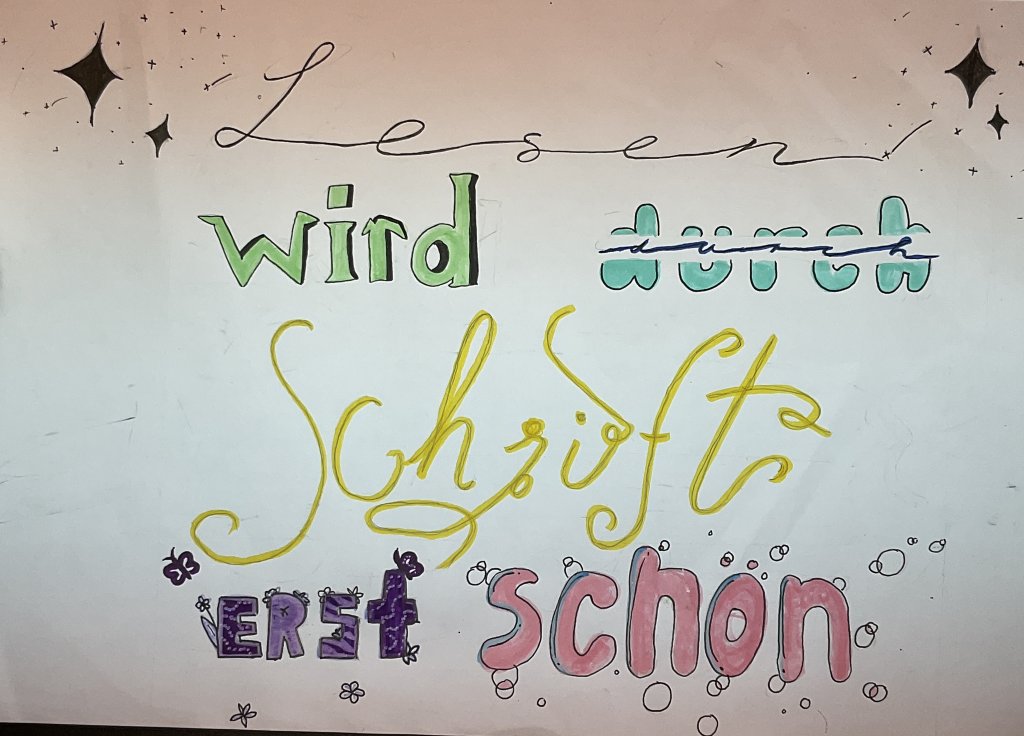 Lesen
wird durch
Schrift
ERSt schön